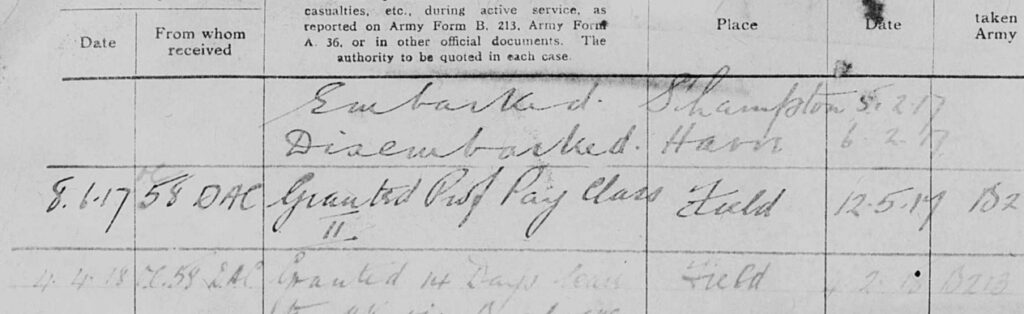 casualties, etc., during active service, as
reported on Army Form B. 213, Army Form
A. 36, or in other official documents. The
authority to be quoted in each case.
Date
From whom
received
Place
Date
taken
Army
Embarked. S'hampton 5.2.17
Disembarked. Havre 6.2.17
8.6.17 OC 58 DAC Granted Prof Pay Class Field 12.5.17 B2
II
4.4.18 OC 58 DAC Granted 14 Days leave Field 2.18 B213